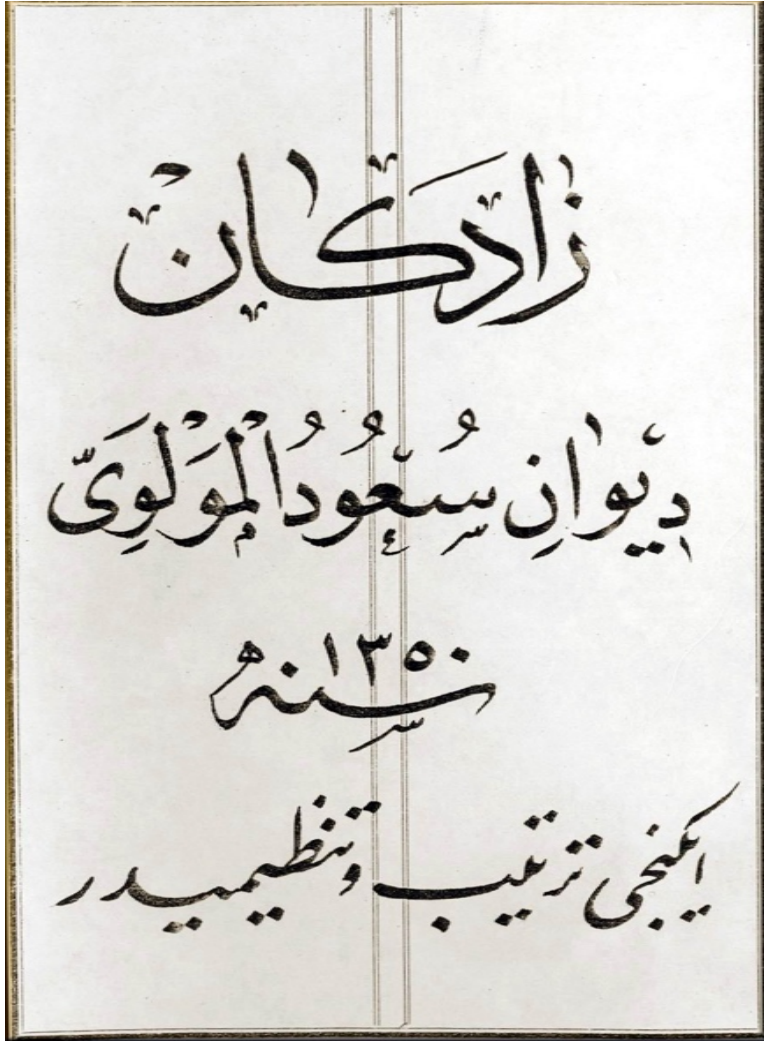 زادكان
دِيوانِ سُعُودُالْمَوْلَوِىّ
سنه ١٣٥٠
ايكنجى ترتيب وتنظيميدر